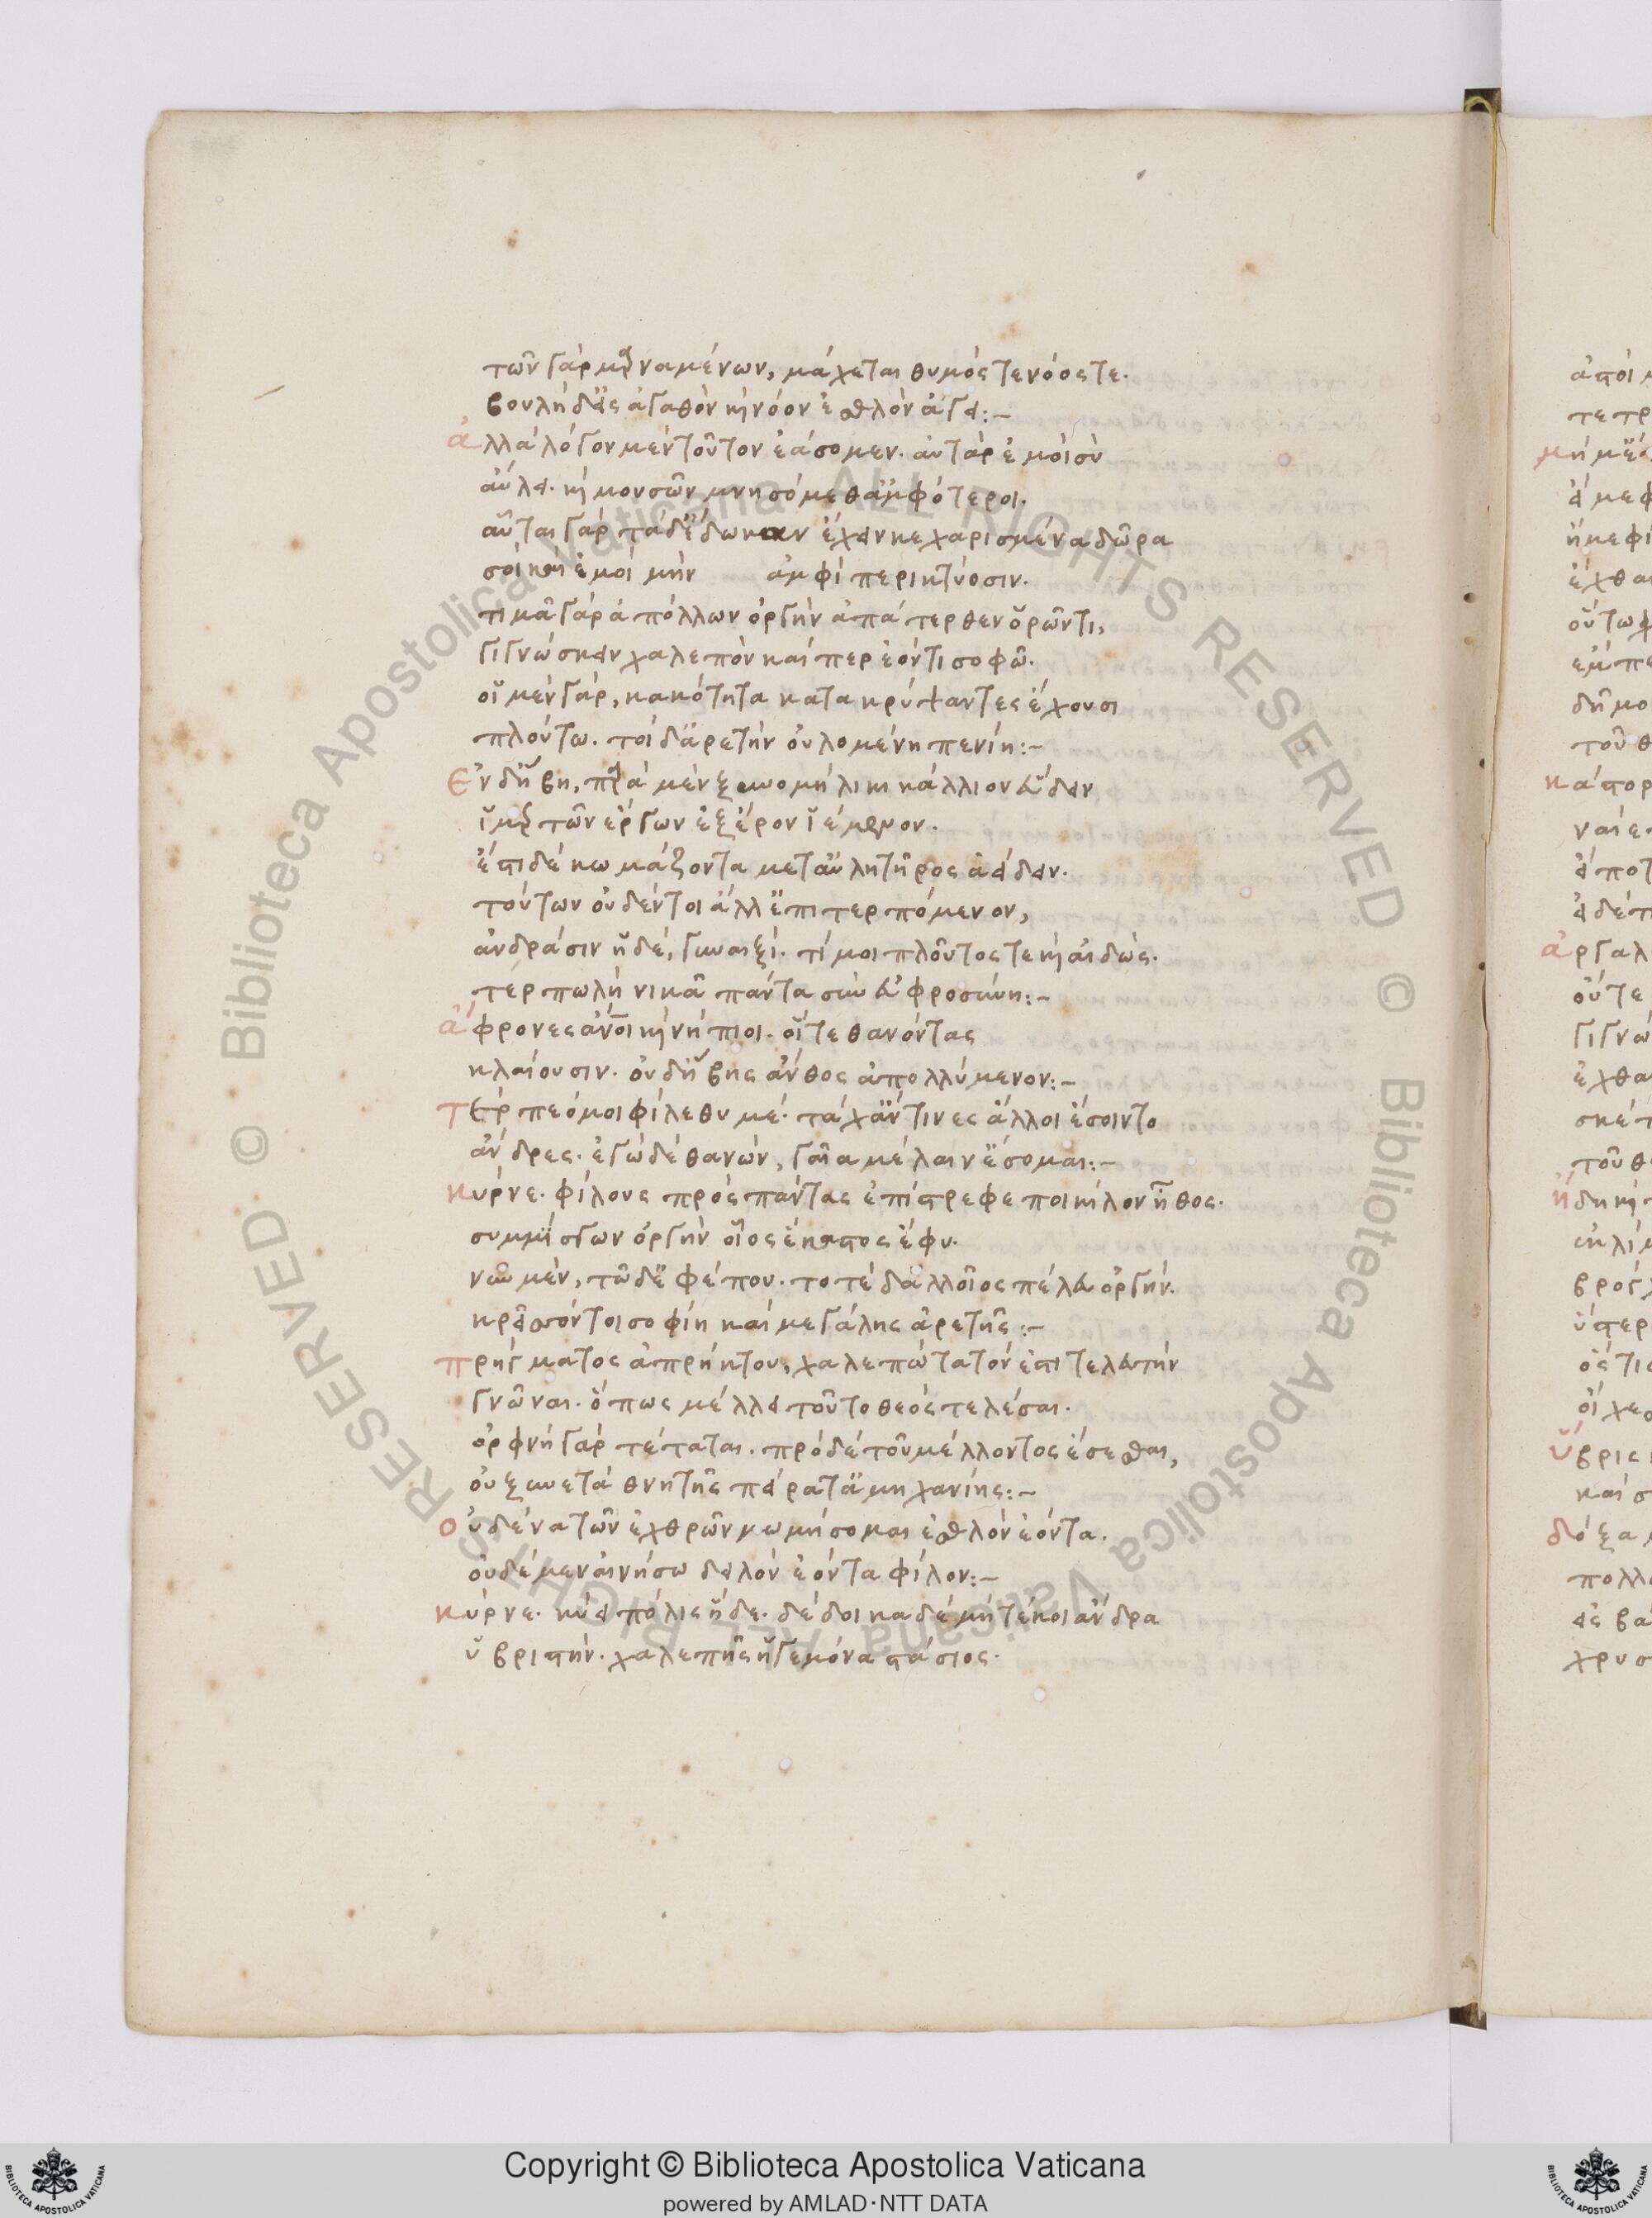 τῶν γὰρ μαρναμένων, μάχεται θυμός τε νόος τε.
βουλὴ δ' εἰς ἀγαθὸν καὶ νόον ἐσθλὸν ἄγει:-
ἀλλὰ λόγον μὲν τοῦτον ἐάσομεν. αὐτὰρ ἐμοὶ σὺ
αὔλει. καὶ μουσῶν μνησόμεθ' ἀμφότεροι.
αὗται γὰρ τάδ' ἔδωκαν ἔχειν κεχαρισμένα δῶρα
σοὶ καὶ ἐμοὶ μὴν ἀμφὶ περικτύοσιν.
τιμᾶ γὰρ ἀπόλλων ὀργὴν ἀπάτερθεν ὁρῶντι,
γιγνώσκειν χαλεπὸν καίπερ ἐόντι σοφῶ.
οἱ μὲν γὰρ, κακότητα κατακρύψαντες ἔχουσι
πλούτω. τοὶ δ' ἀρετὴν οὐλομένη πενίη:-
Ἐν δ' ἥβη, παρὰ μὲν ξυνομήλικι κάλλιον εὕδειν
ἱμερτῶν ἔργων ἐξ ἔρον ἱέμενον.
ἔστι δὲ κωμάζοντα μετ' αὐλητῆρος ἀείδειν.
τούτων οὐδέν τοι ἄλλ' ἔπι τερπόμενον,
ἀνδράσιν ἠδὲ, γυναιξί. τί μοι πλοῦτος τε καὶ αἰδώς.
τερπωλὴ νικᾶ πάντα σὺν εὐφροσύνη:-
ἄφρονες ἄνοι καὶ νήπιοι. οἵτε θανόντας
κλαίουσιν. οὐδ' ἥβης ἄνθος ἀπολλύμενον:-
τέρπεό μοι φίλε θυμέ. τάχ' ἄν τινες ἄλλοι ἔσοιντο
ἄνδρες. ἐγὼ δὲ θανὼν, γαῖα μέλαιν' ἔσομαι:-
κύρνε. φίλους πρὸς πάντας ἐπίστρεφε ποικίλον ἦθος.
συμμίσγων ὀργὴν οἷος ἕκαστος ἔφυ.
νῦν μὲν, τῶδ' ἐφέπου. τοτὲ δ' ἀλλοῖος πέλευ ὀργήν.
κρεῖσσόν τοι σοφίη καὶ μεγάλης ἀρετῆς:-
πρήγματος ἀπρήκτου, χαλεπώτατόν ἐστι τελευτὴν
γνῶναι. ὅπως μέλλει τοῦτο θεὸς τελέσαι.
ὄρφνη γὰρ τέταται. πρὸ δὲ τοῦ μέλλοντος ἔσεσθαι,
οὐ ξυνετὰ θνητῆς πείρατ' ἀμηχανίης:-
οὐδένα τῶν ἐχθρῶν μωμήσομαι ἐσθλὸν ἐόντα.
οὐδὲ μὲν αἰνήσω δειλὸν ἐόντα φίλον:-
κύρνε. κύει πόλις ἥδε. δέδοικα δὲ μὴ τέκοι ἄνδρα
ὑβριστήν. χαλεπῆς ἡγεμόνα στάσιος.
Copyright © Biblioteca Apostolica Vaticana
powered by AMLAD · NTT DATA